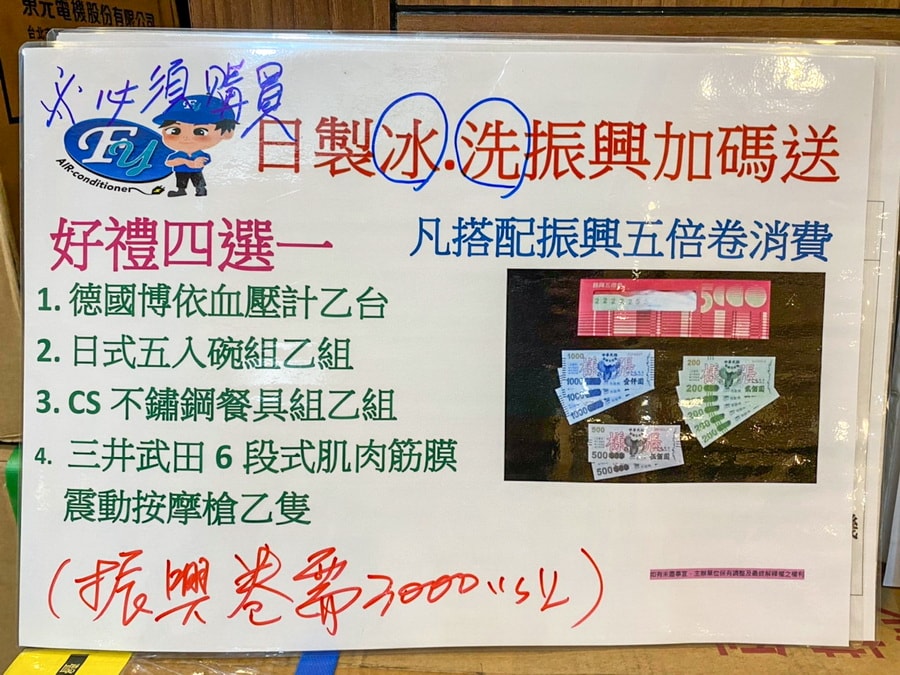 東元電機股份有限公司
必須購買
FY
AIR-conditioner
日製冰.洗振興加碼送
好禮四選一
凡搭配振興五倍卷消費
1. 德國博依血壓計乙台
2. 日式五入碗組乙組
3. CS 不鏽鋼餐具組乙組
4. 三井武田 6 段式肌肉筋膜
震動按摩槍乙隻
5000
1000
1000
1000
壹仟圓
200
200
200
200
貳佰圓
樣張
500
500
伍佰圓
(振興卷需3000以上)
如有未盡事宜，主辦單位保有調整及最終解釋權之權利